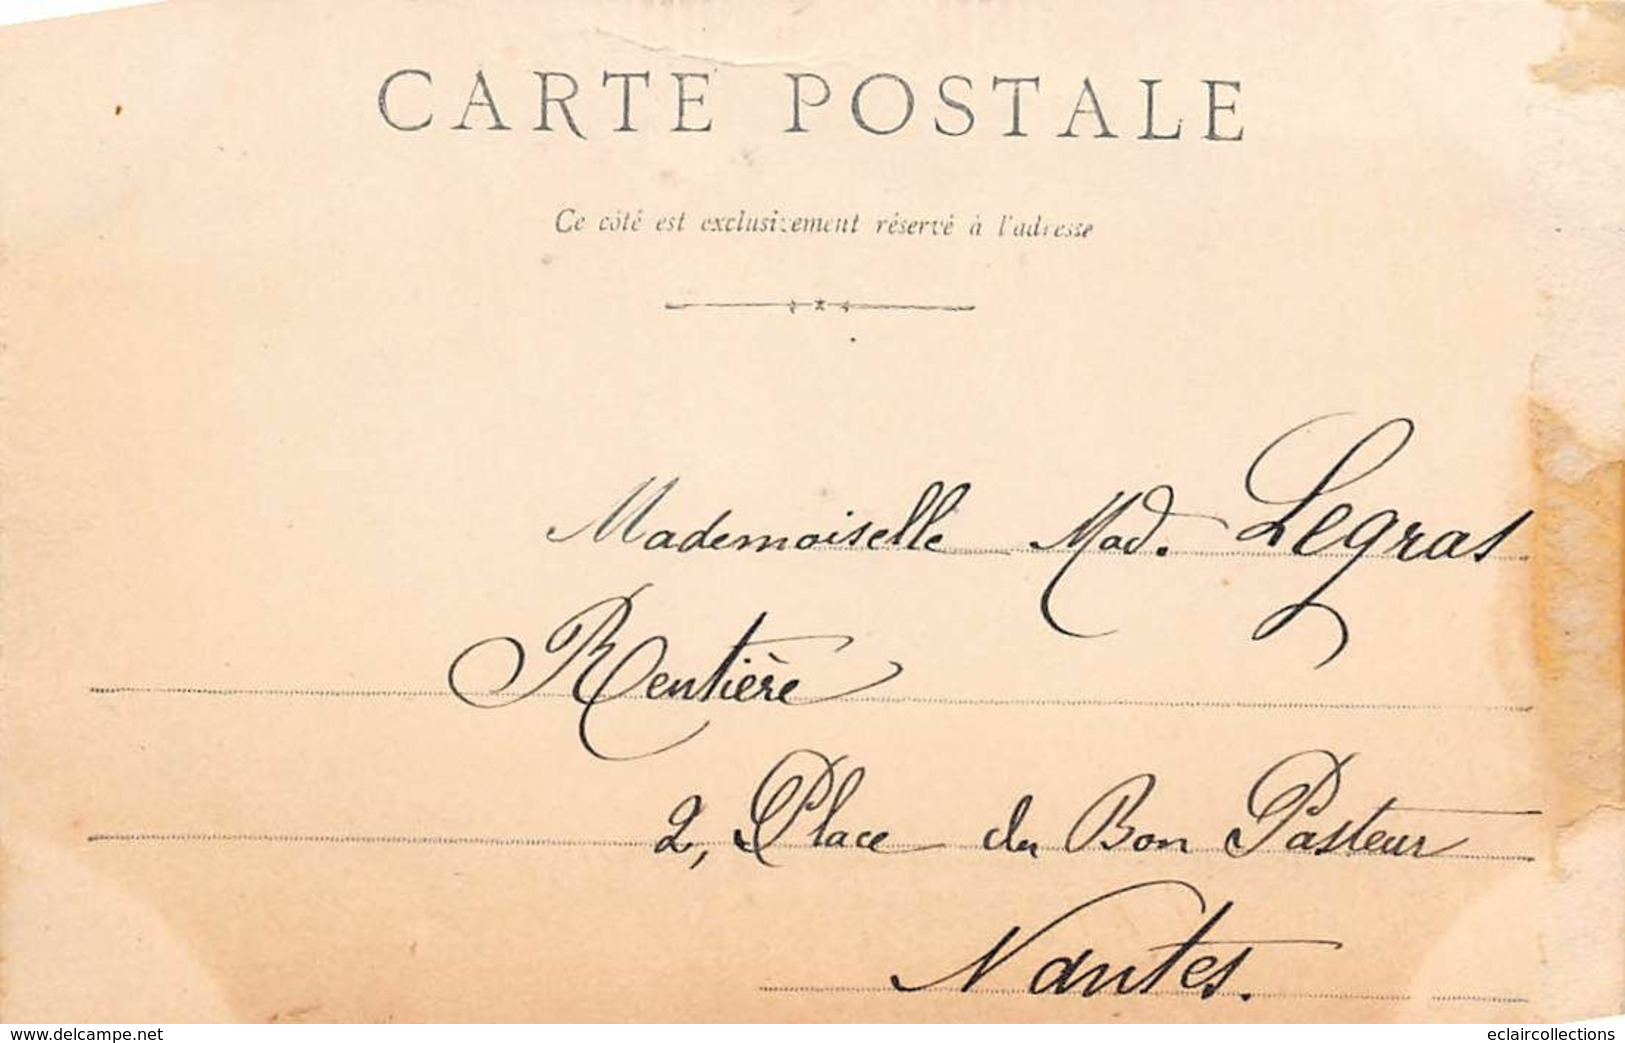 CARTE POSTALE
Ce côté est exclusivement réservé à l'adresse
Mademoiselle Mad. Legras
Rentière
2, Place du Bon Pasteur
Nantes.
www.delcampe.net
eclaircollections